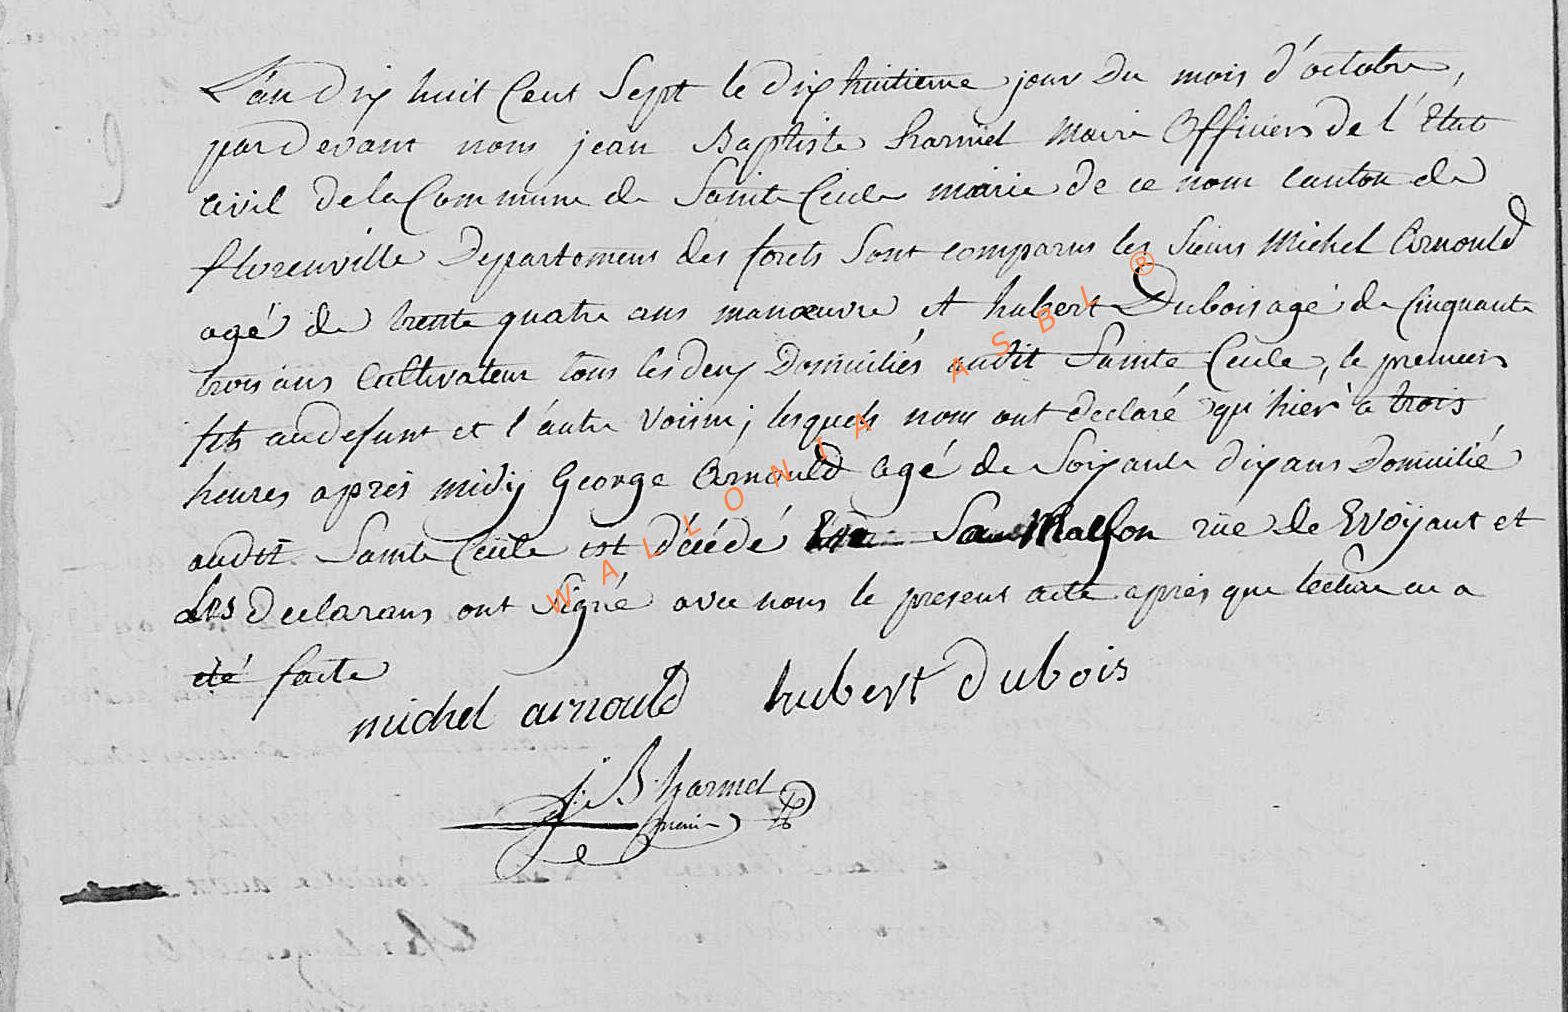 L'an Dix huit Cent Sept le dix huitieme jour du mois d'octobre,
pardevant nous jean Baptiste harmel Maire Officier de l'Etat
civil de la Commune de Sainte Cecile mairie de ce nom canton de
florenville Departement des forets Sont comparus les Sieurs Michel Arnould
agé de trente quatre ans manœuvre et hubert Dubois agé de Cinquante
trois ans Cultivateur tous les deux Domiciliés audit Sainte Cecile, le premier
fils au defunt et l'autre voisin; lesquels nous ont declaré qu'hier à trois
heures après midy George Arnould agé de Soixante dix ans Domicilié
audit Sainte Cecile est décédé En Sa Maison rüe de Evoÿaut et
Les Declarans ont Signé avec nous le present acte après que lecture en a
été faite
michel arnould hubert Dubois
J: B. harmel
maire
WALLONIA ASBL ®